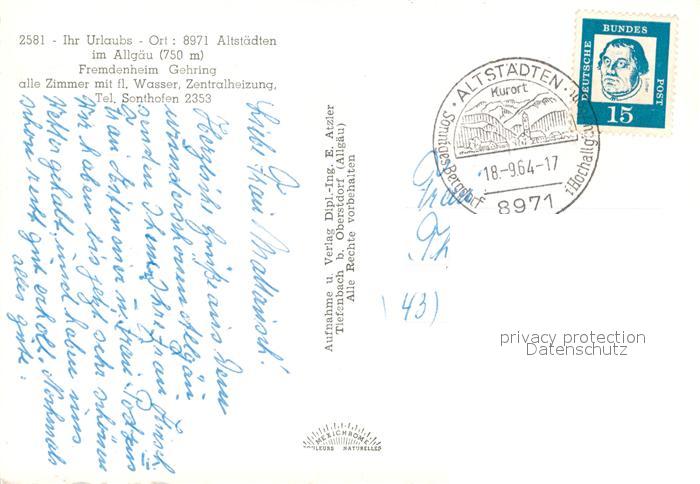 2581 - Ihr Urlaubs - Ort : 8971 Altstädten
im Allgäu (750 m)
Fremdenheim Gehring
alle Zimmer mit fl. Wasser, Zentralheizung,
Tel. Sonthofen 2353
Herzliche Grüße aus dem
wunderschönen Allgäu
senden Ihnen Ihre Frau
Wir haben bis jetzt sehr schönes
Wetter gehabt, und haben uns
schon recht gut erholt. Nochmals
alles gute.
Aufnahme u. Verlag Dipl.-Ing. E. Atzler
Tiefenbach b. Oberstdorf (Allgäu)
Alle Rechte vorbehalten
MEXICHROME
COULEURS NATURELLES
ALTSTÄDTEN
Kurort
Sonniges Bergdorf
i. Hochallgäu
18.-9.64-17
8971
DEUTSCHE BUNDES POST
15
(43)
privacy protection
Datenschutz